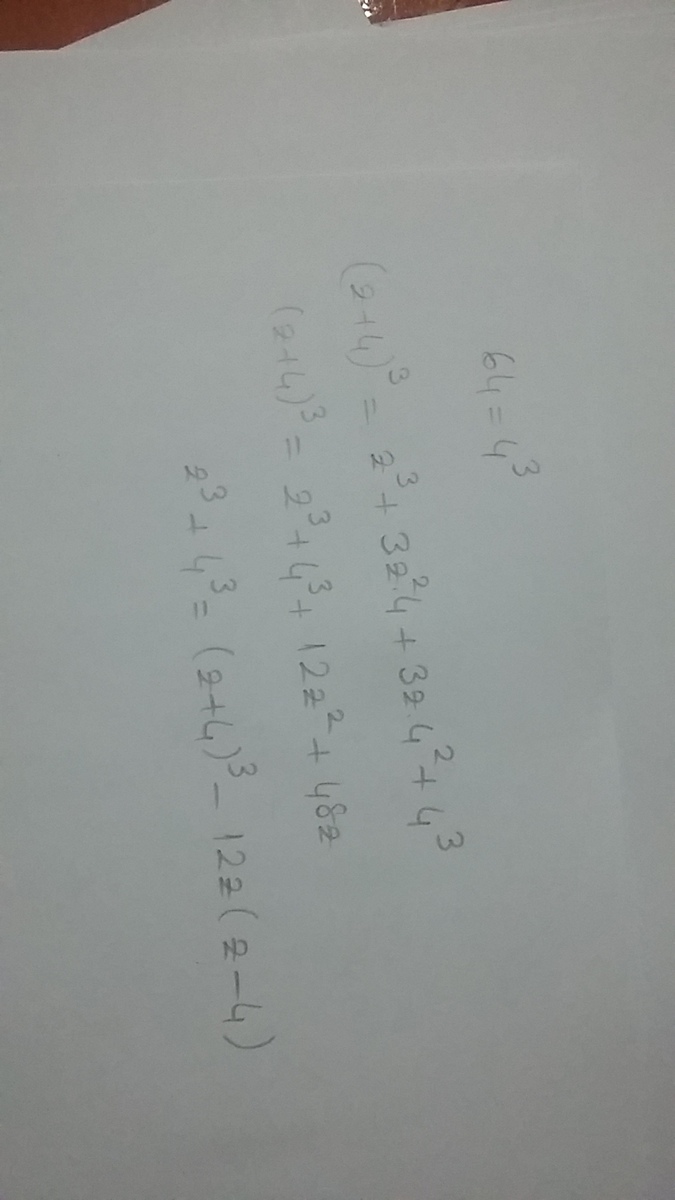 64 = 4³
(z+4)³ = z³ + 3z².4 + 3z.4² + 4³
(z+4)³ = z³ + 4³ + 12z² + 48z
z³ + 4³ = (z+4)³ - 12z(z-4)